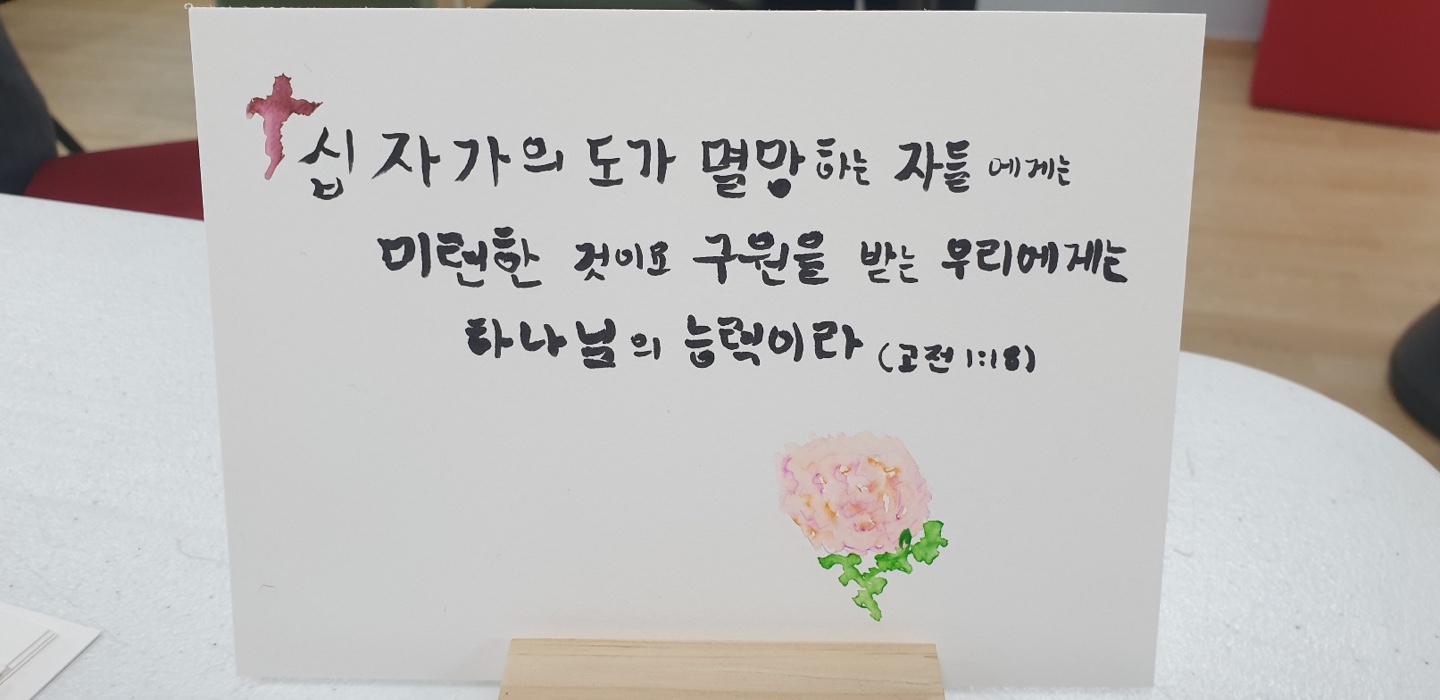 십자가의 도가 멸망하는 자들에게는
미련한 것이요 구원을 받는 우리에게는
하나님의 능력이라 (고전 1:18)